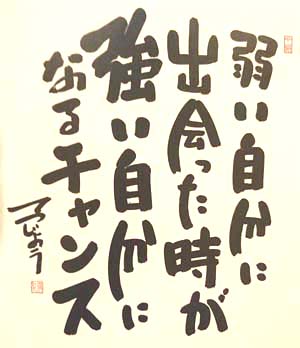 弱い自分に
出会った時が
強い自分に
なるチャンス